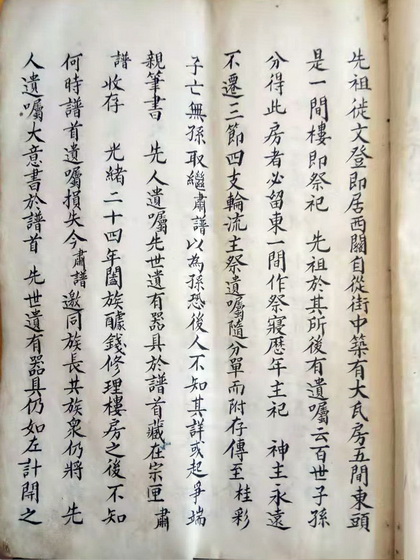 先祖從文登即居西關自從街中築有大瓦房五間東頭
是一間樓即祭祀　先祖於其所後有遺囑云百世子孫
分得此房者必留東一間作祭寢歷年主祀　神主永遠
不遷三節四支輪流主祭遺囑隨分單而附存傳至桂彩
子亡無孫取繼肅譜以為孫恐後人不知其詳或起爭端
親筆書　先人遺囑先世遺有器具於譜首藏在宗匣　肅
譜收存　光緒二十四年闔族醵錢修理樓房之後不知
何時譜首遺囑損失今肅譜邀同族長共族衆仍將　先
人遺囑大意書於譜首　先世遺有器具仍如左計開之